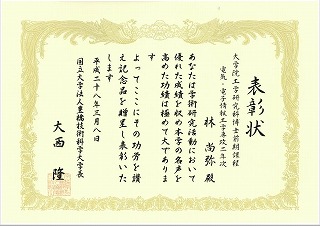 表彰状
大学院工学研究科博士前期課程
電気・電子情報工学専攻二年次
林 尚弥 殿
あなたは学術研究活動において
優れた成績を収め本学の名声を
高めた功績は極めて大でありま
す
よってここにその功労を讃
え記念品を贈呈し表彰いた
します
平成二十八年三月八日
国立大学法人豊橋技術科学大学長
大西 隆